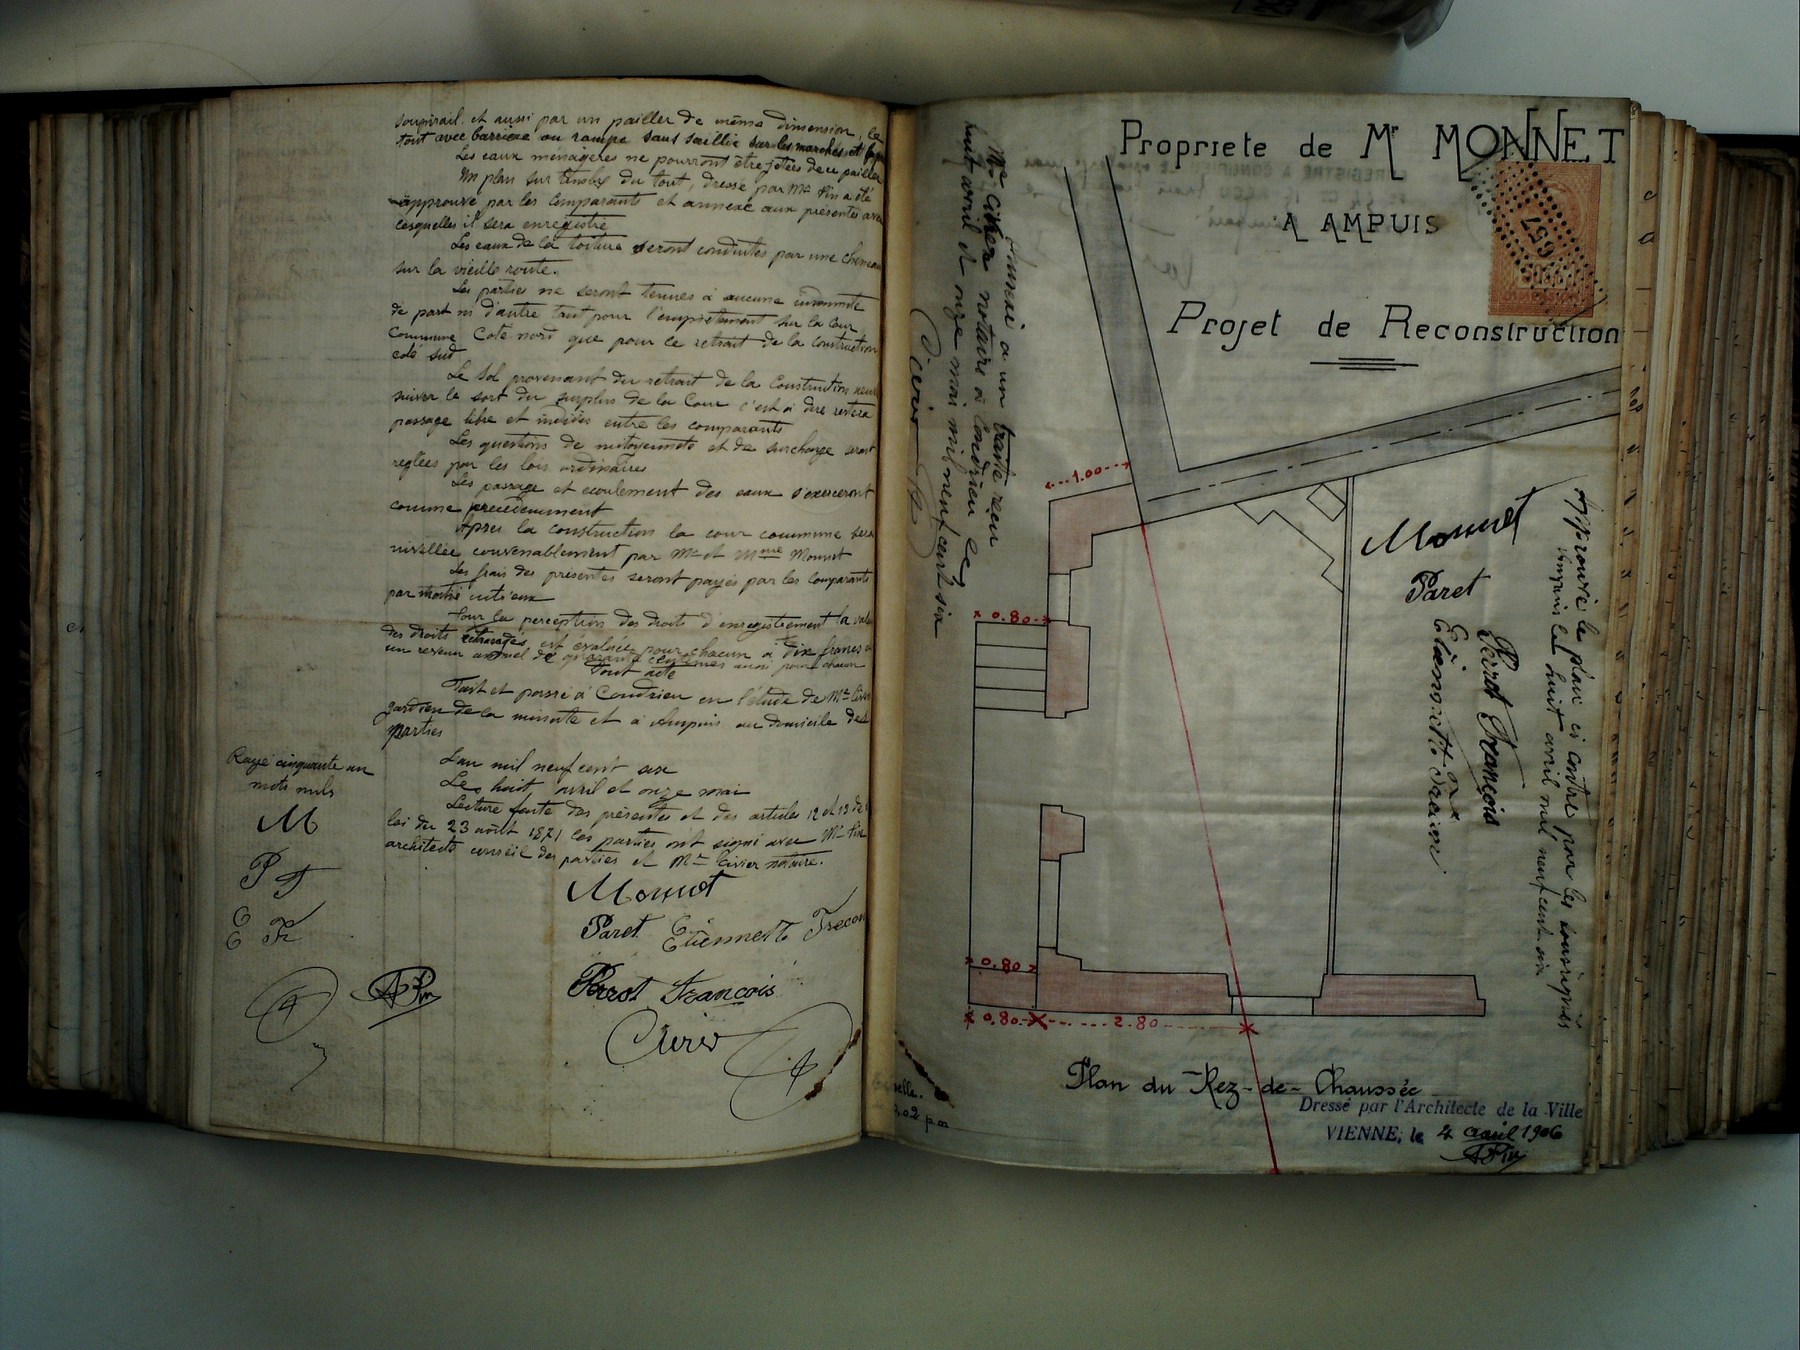 soupirail et aussi par un pailler de même dimension, le
tout avec barrière ou rampe sans saillie sur les marches et
Les eaux ménagères ne pourront être jetées de ce pailler
Un plan sur timbre du tout, dressé par Mr Pin a été
approuvé par les comparants et annexé aux présentes avec
lesquelles il sera enregistré
Les eaux de la toiture seront conduites par une cheneau
sur la vieille route.
Les parties ne seront tenues à aucune indemnité
de part ni d'autre tant pour l'empiètement sur la Cour
Commune Coté nord que pour le retrait de la Construction
coté sud
Le Sol provenant du retrait de la Construction
suivra le sort du surplus de la Cour c'est à dire restera
passage libre et indivis entre les comparants
Les questions de mitoyenneté et de surcharge seront
reglées par les lois ordinaires
Les passage et écoulement des eaux s'exerceront
comme précédemment
Après la construction la cour commune sera
nivellée convenablement par Mr et Mme Monnet
Les frais des présentes seront payés par les comparants
par moitié entr'eux
Pour la perception des droits d'enregistrement la
des droits est évaluée pour chacun à dix francs
un revenu annuel de centimes aussi pour chacun
Dont acte
Fait et passé à Condrieu en l'étude de Me Civier
gardien de la minute et à Ampuis au domicile des
parties
L'an mil neuf cent six
Les huit avril et onze mai
Lecture faite des présentes et des articles 12 et 13 de la
loi du 23 août 1871 les parties ont signé avec Mr Pin
architecte conseil des parties et Me Civier notaire.
Rayé cinquante un
mots nuls
M
P F
E
E Fr
APin
Monnet
Paret Etiennette
Perrot François
Civier
Propriete de Mr MONNET
A AMPUIS
Projet de Reconstruction
657
Annexé à un traité reçu
Me Civier notaire à Condrieu les
huit avril et onze mai mil neuf cent six
Civier
1.00
0.80
0.80
0.80
2.80
Monnet
Paret
Perrot François
Etiennette
Approuvé le plan ci contre par les soussignés
Ampuis le huit avril mil neuf cent six
Plan du Rez-de-Chaussée
Dressé par l'Architecte de la Ville
VIENNE, le 4 avril 1906
APin